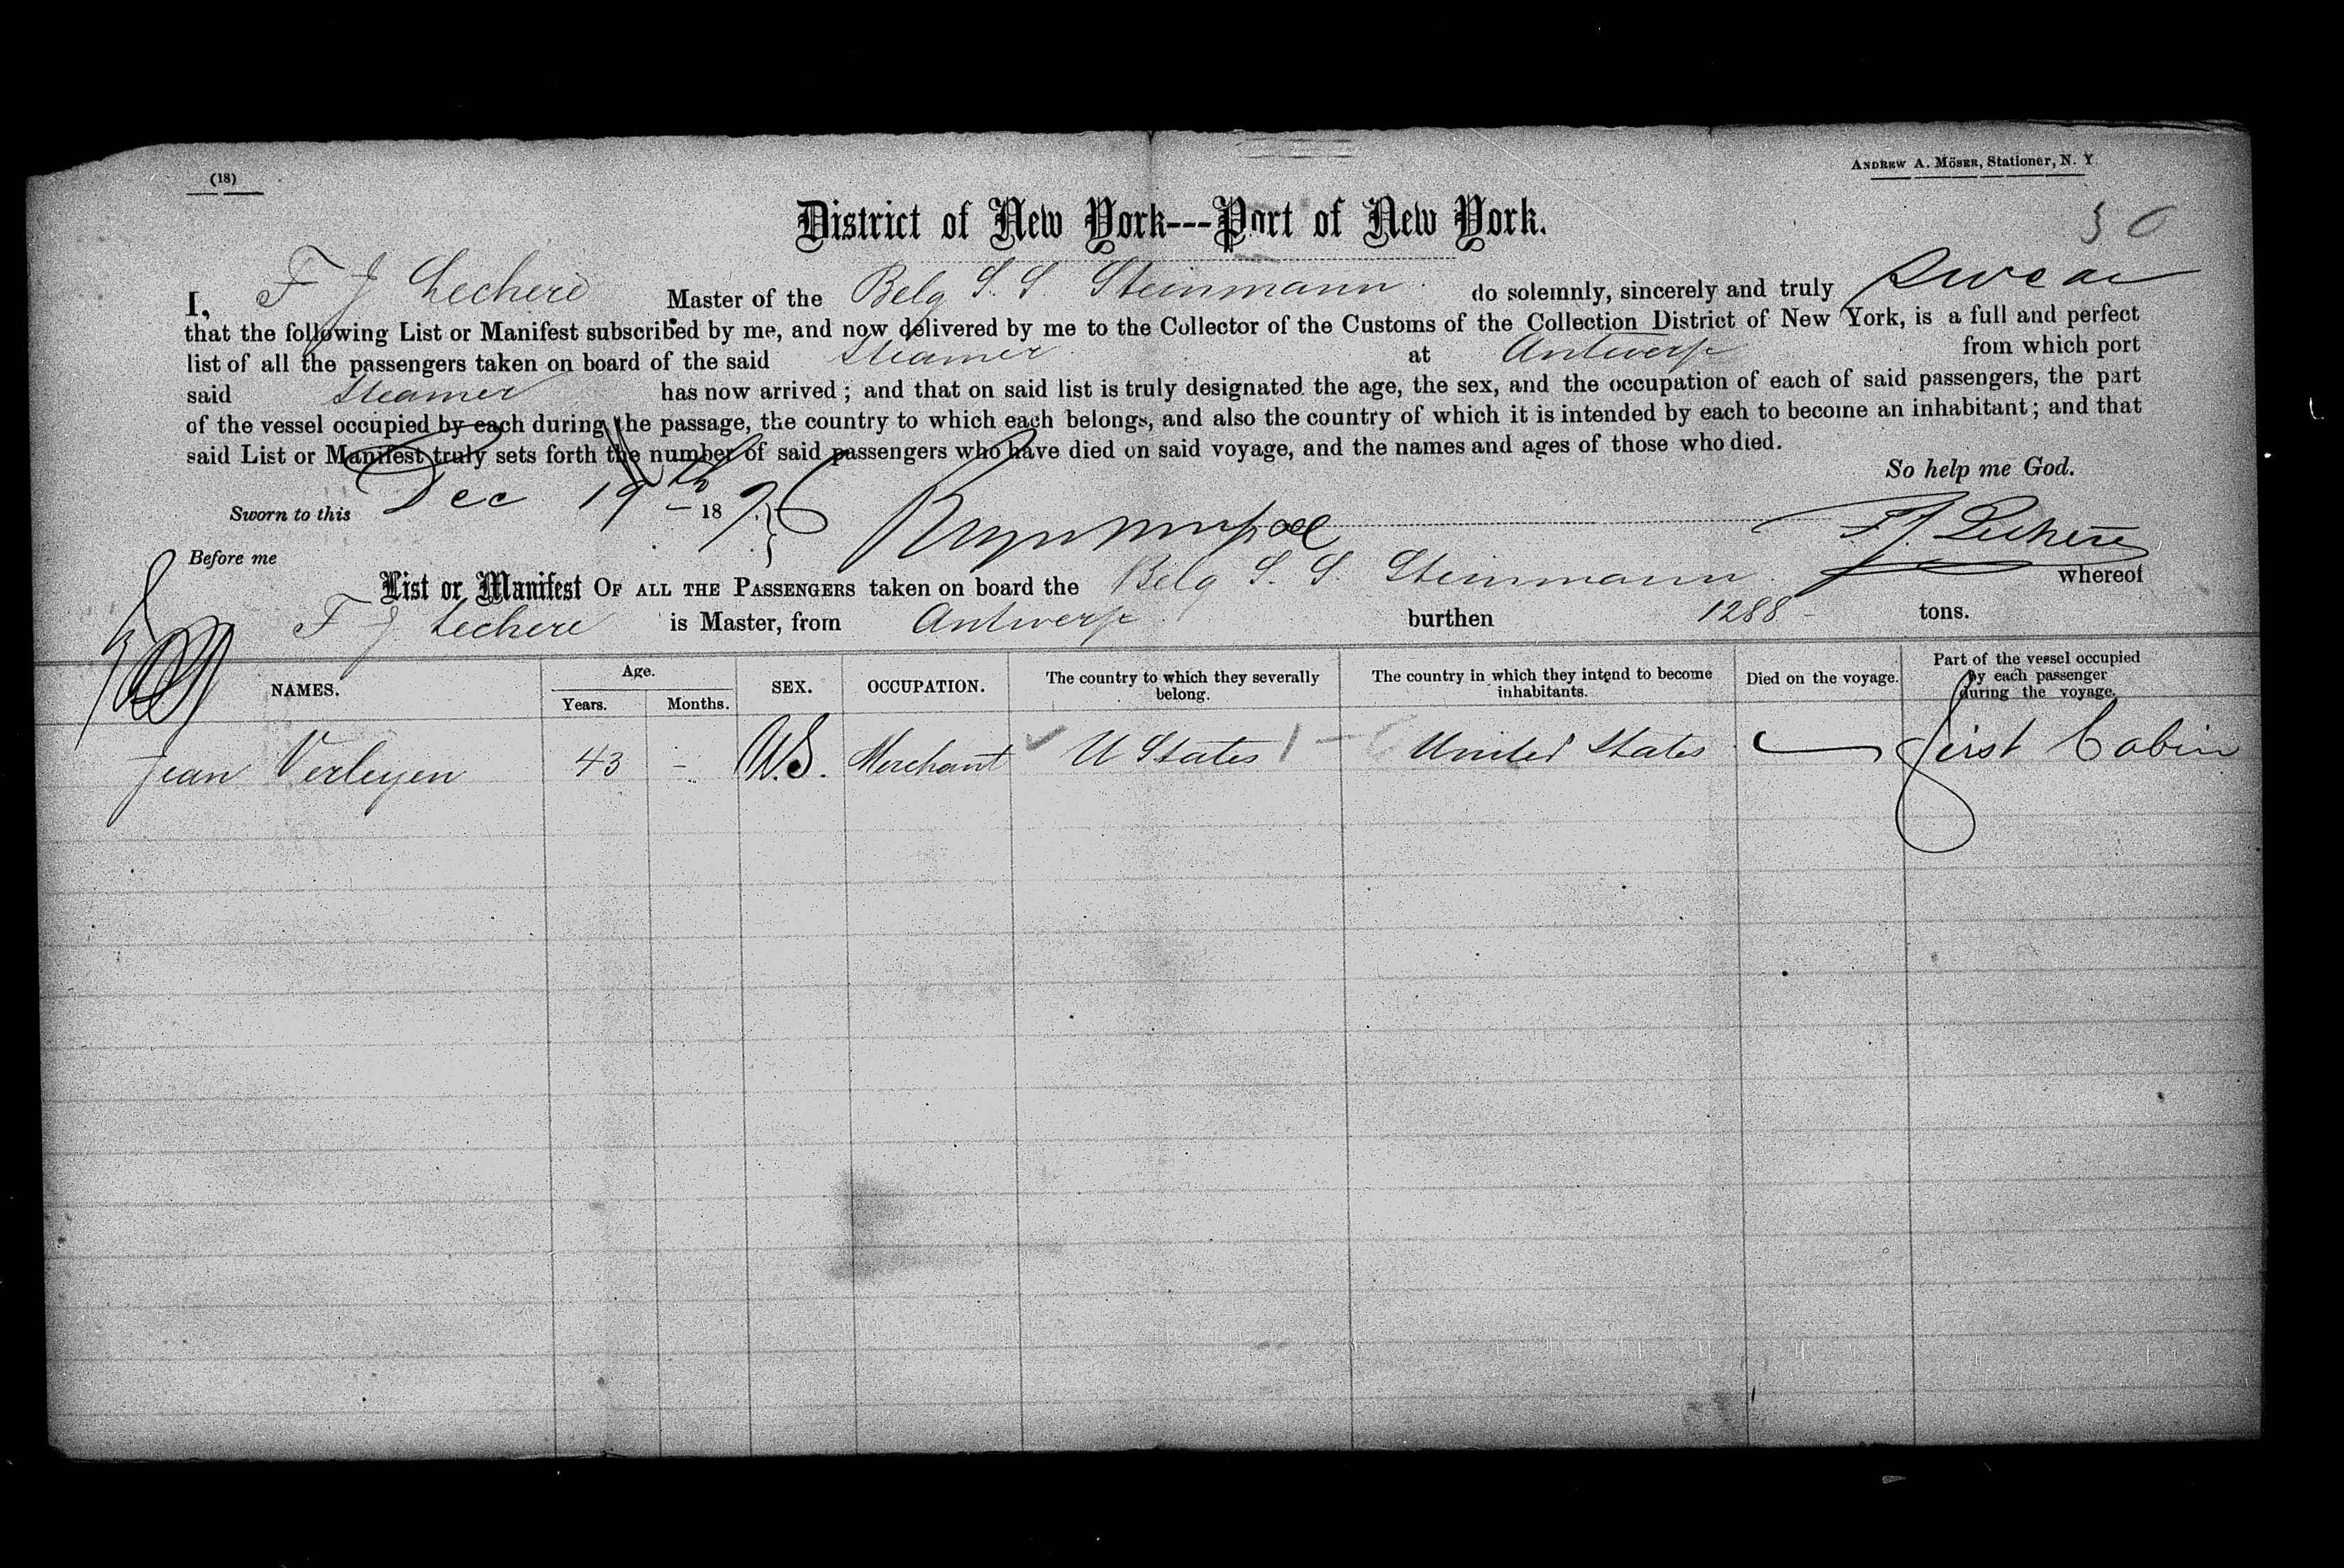 (18)
ANDREW A. MÖSER, Stationer, N. Y
District of New York---Port of New York.
I, F J Lechere Master of the Belg S. S. Steinmann do solemnly, sincerely and truly Swear
that the following List or Manifest subscribed by me, and now delivered by me to the Collector of the Customs of the Collection District of New York, is a full and perfect
list of all the passengers taken on board of the said Steamer at Antwerp from which port
said Steamer has now arrived; and that on said list is truly designated the age, the sex, and the occupation of each of said passengers, the part
of the vessel occupied by each during the passage, the country to which each belongs, and also the country of which it is intended by each to become an inhabitant; and that
said List or Manifest truly sets forth the number of said passengers who have died on said voyage, and the names and ages of those who died.
So help me God.
Sworn to this Dec 19th 187
F J. Lechere
Before me
List or Manifest OF ALL THE PASSENGERS taken on board the Belg S. S. Steinmann whereof
F J Lechere is Master, from Antwerp burthen 1288 - tons.
NAMES. Age. Years. Months. SEX. OCCUPATION. The country to which they severally belong. The country in which they intend to become inhabitants. Died on the voyage. Part of the vessel occupied by each passenger during the voyage.
Jean Verleyen 43 - Merchant U States United States First Cabin